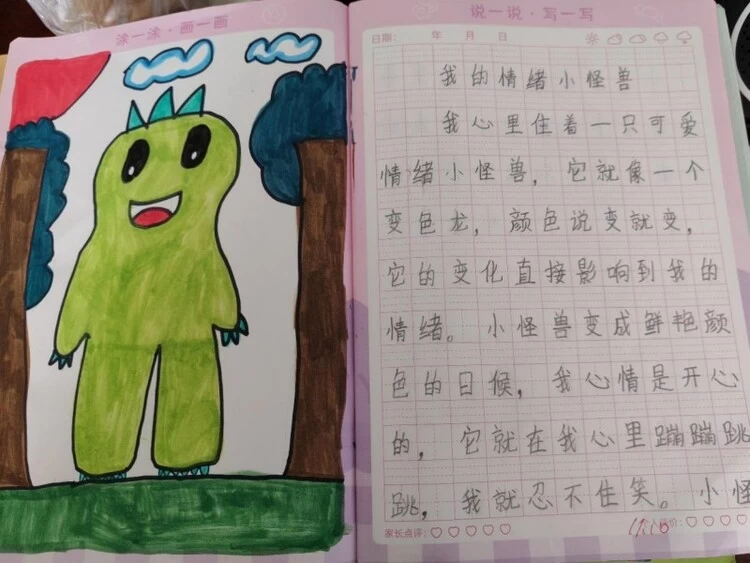 涂一涂·画一画
说一说·写一写
日期： 年 月 日
我的情绪小怪兽
我心里住着一只可爱
情绪小怪兽，它就像一个
变色龙，颜色说变就变，
它的变化直接影响到我的
情绪。小怪兽变成鲜艳颜
色的日候，我心情是开心
的，它就在我心里蹦蹦跳
跳，我就忍不住笑。小怪
家长点评：